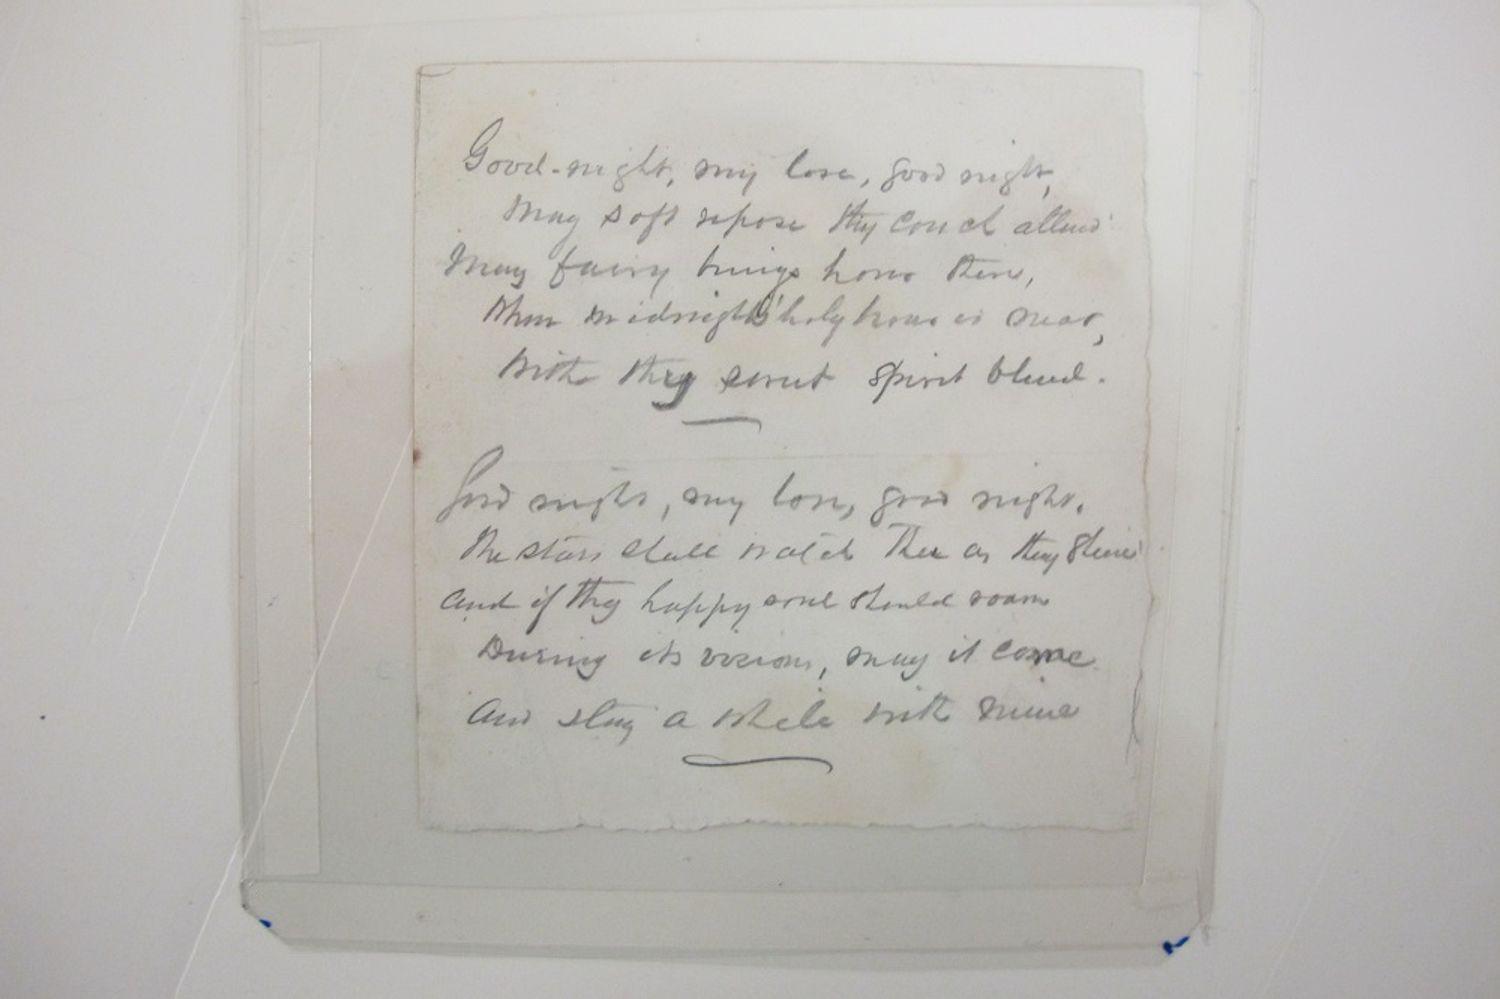 Good-night, my love, good night,
May soft repose thy couch attend
May fairy beings hover there,
When midnight's holy hour is near,
With thy sweet spirit blend.
Good night, my love, good night.
The stars shall watch thee as they shine
And if thy happy soul should roam
During its visions, may it come
And stay a while with mine